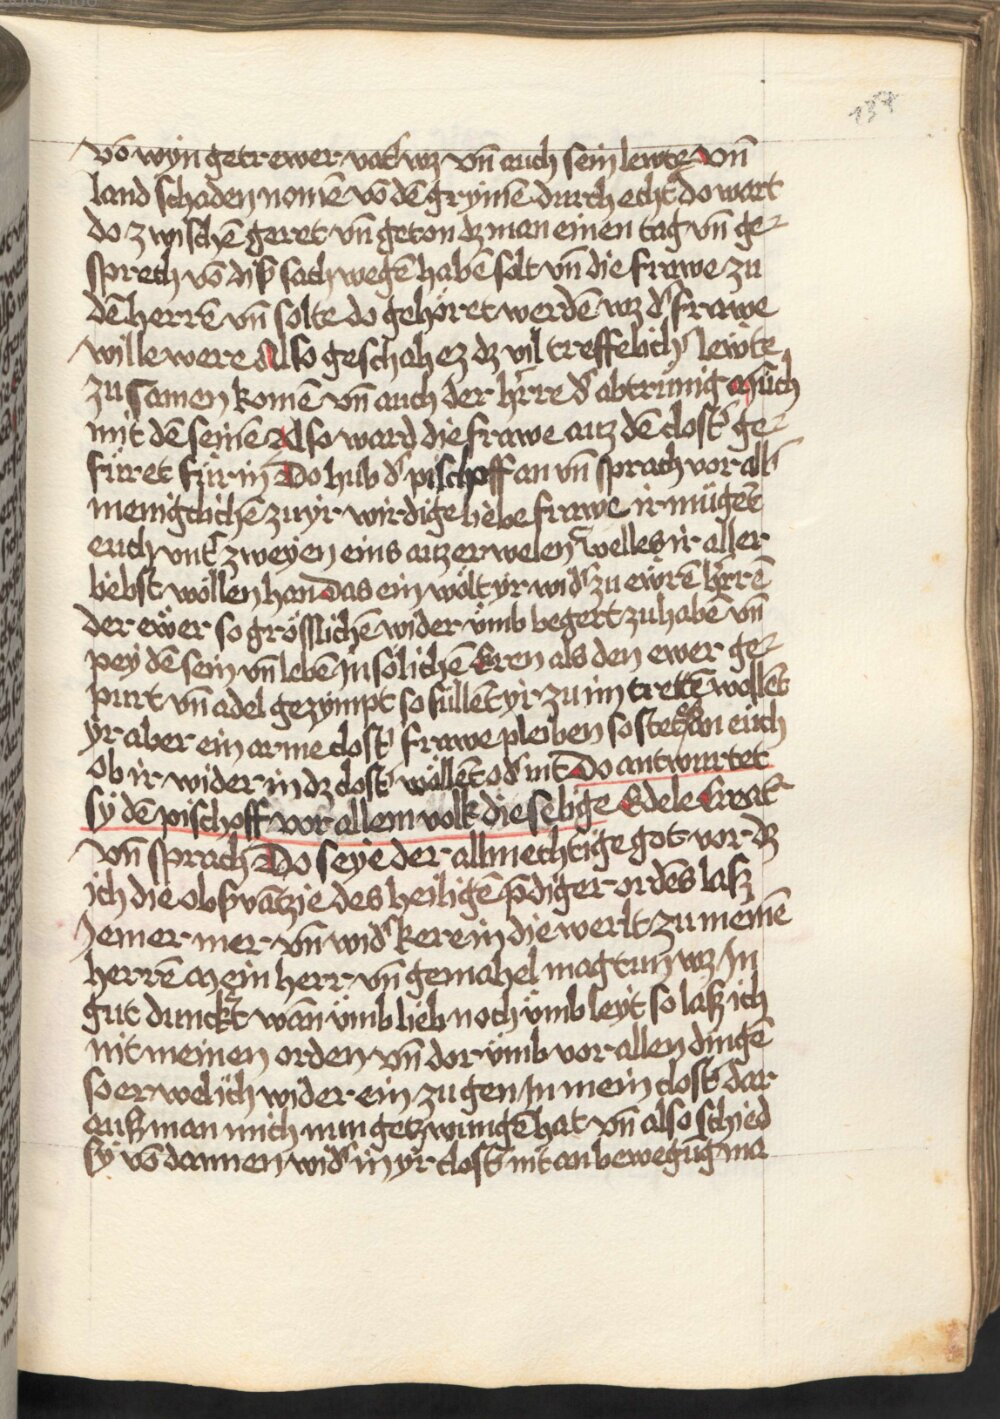 137
võ wyn getrewer vat͛ wz vn̄ auch sein lewte von̄
land schaden nomē vō dē grymē durchecht͛ do wart
do zwischē geret vn̄ geton dz man einen tag vn̄ ge⸗
sprech vō dis͛ sach wegē habē solt vn̄ die frawe zu
dē herrē vn̄ solte do gehöret werdē wz d͛ frawe
wille were Also geschah ez dz vil treffelich͛ lewte
zu samen komē vn̄ auch der h͛rre d͛ abtrünig münch
mit dē seinē Also ward die frawe auz dē clost͛ ge⸗
füret für in Do hub d͛ pischoff an vn̄ sprach vor all͛
meniglichē zu yr wirdige liebe frawe ir mügēt
euch vnt͛ zweyen eins auz erwelen welles ir aller
liebst wöllen han das ein wölt yr wid͛ zu ewrē h͛rrē
der ewer so grösslichē wider vmb begert zu habē vn̄
pey dē sein vn̄ lebē in sölichē Eren als den ewer ge⸗
purt vn̄ adel gezympt so süllēt yr zu im trettē wollēt
yr aber ein arme clost͛ frawe pleiben so stet es an euch
ob ir wider in dz clost͛ wöllēt od͛ nit Do antwurtet
sy dē pischoff vor allem volk die selige Edele Creat͛
vn̄ sprach Do seye der allmechtige got vor dz
ich die obs͛vātzie des heiligē p̄diger ordēs lasz
Jemer mer vn̄ wid͛ kere in die werlt zu meinē
herrē mein herr vn̄ gemahel mag tun wz Jn
gut dunckt wān vmb lieb noch vmb leyt so lasz ich
nit meinen orden vn̄ dor vmb vor allen dingē
so erwel ich wider ein zu gen Jn mein clost͛ dar
ausz man mich nun getzwungē hat vn̄ also schied
sy vō dannen wid͛ in yr clost͛ mt an bewegūg ma